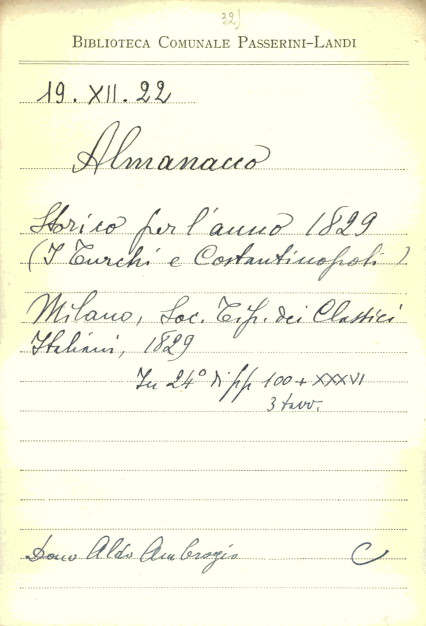 22)
BIBLIOTECA COMUNALE PASSERINI-LANDI
19.XII.22
Almanacco
Storico per l'anno 1829
(I Turchi e Costantinopoli)
Milano, Soc. Tip. dei Classici
Italiani, 1829
In 24° di pp 100 + XXXVI
3 tavv.
Dono Aldo Ambrogio C